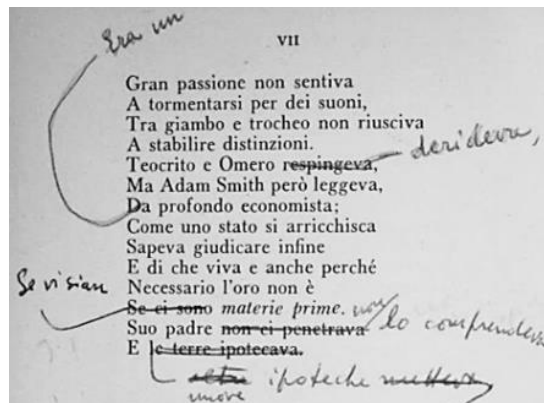 Era un
VII
Gran passione non sentiva
A tormentarsi per dei suoni,
Tra giambo e trocheo non riusciva
A stabilire distinzioni.
Teocrito e Omero respingeva, derideva,
Ma Adam Smith però leggeva,
Da profondo economista;
Come uno stato si arricchisca
Sapeva giudicare infine
E di che viva e anche perché
Necessario l'oro non è
Se vi sian
Se ci sono materie prime.
Suo padre non ci penetrava non lo comprendeva
E le terre ipotecava.
altre ipoteche metteva
nuove